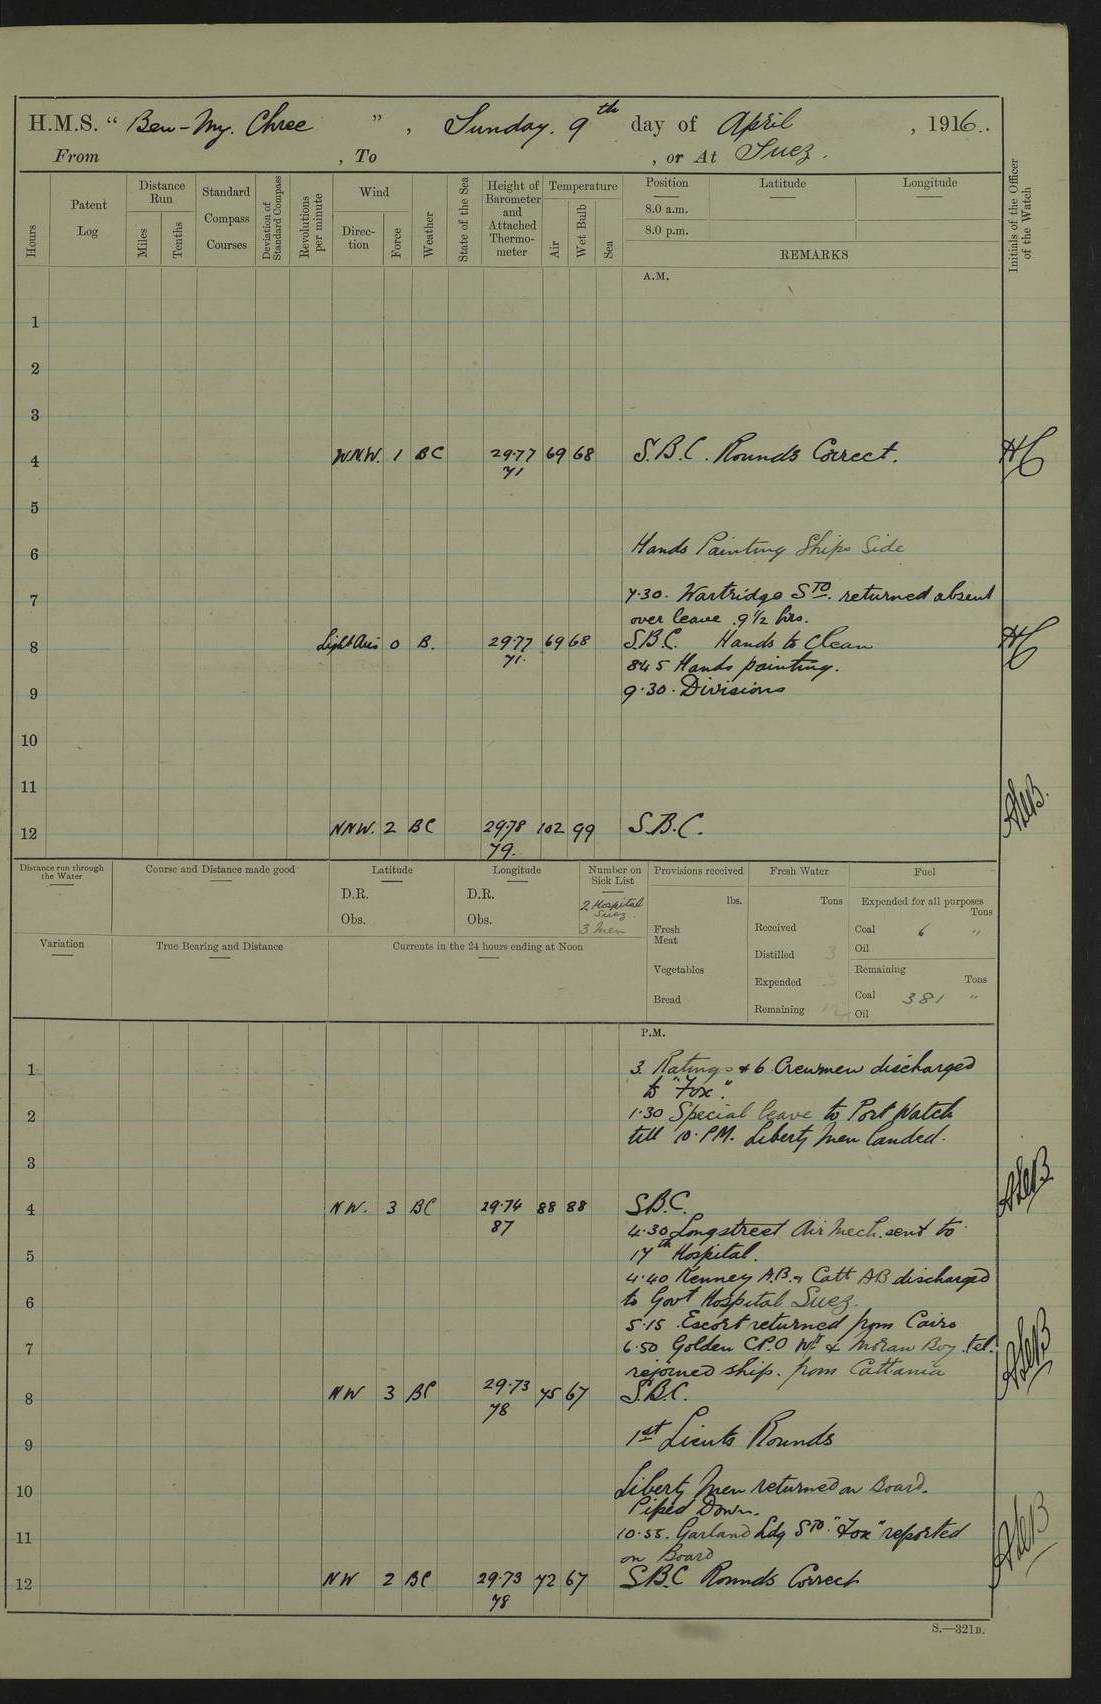 H.M.S. “ Ben-My. Chree ” , Sunday. 9th day of April , 1916..
From , To , or At Suez.
Hours
Patent Log
Distance Run
Miles
Tenths
Standard Compass Courses
Deviation of Standard Compass
Revolutions per minute
Wind
Direc-tion
Force
Weather
State of the Sea
Height of Barometer and Attached Thermo-meter
Temperature
Air
Wet Bulb
Sea
Position Latitude Longitude
8.0 a.m.
8.0 p.m.
REMARKS
Initials of the Officer of the Watch
A.M.
1
2
3
4 W.N.W. 1 BC 29.77 71 69 68 S.B.C. Rounds Correct. HC
5
6 Hands Painting Ships Side
7 7.30. Wartridge STO. returned absent
over leave .9½ hrs.
8 Light Airs 0 B. 29.77 71. 69 68 S.B.C. Hands to Clean HC
845 Hands painting.
9 9.30. Divisions
10
11
12 NNW. 2 BC 29.78 79. 102 99 S.B.C.
Distance run through the Water
Course and Distance made good
Latitude
D.R.
Obs.
Longitude
D.R.
Obs.
Number on Sick List
2 Hospital
Suez
3 Men
Provisions received
lbs.
Fresh Meat
Vegetables
Bread
Fresh Water
Tons
Received
Distilled 3
Expended 3
Remaining
Fuel
Expended for all purposes
Tons
Coal 6 "
Oil
Remaining
Tons
Coal 381 "
Oil
Variation
True Bearing and Distance
Currents in the 24 hours ending at Noon
P.M.
1 3. Ratings & 6 Crewmen discharged
to "Fox".
2 1.30 Special leave to Port Watch
till 10. PM. Liberty Men landed.
3
4 NW. 3 BC 29.74 87 88 88 S.B.C.
4.30 Longstreet Air Mech. sent to
5 17th Hospital.
4.40 Kenney A.B. & Catt AB discharged
6 to Govt Hospital Suez.
5.15 .Escort returned from Cairo
7 6.50 Golden C.P.O Wr & Moran Boy .tel.
rejoined ship. from Cattania
8 NW 3 BC 29.73 78 75 67 S.B.C.
9 1st Lieuts Rounds
10 Liberty Men returned on Board.
Piped Down.
11 10.55. Garland Ldg STO. "Fox" reported
on Board
12 NW 2 BC 29.73 78 72 67 SBC Rounds Correct
S.—321B.